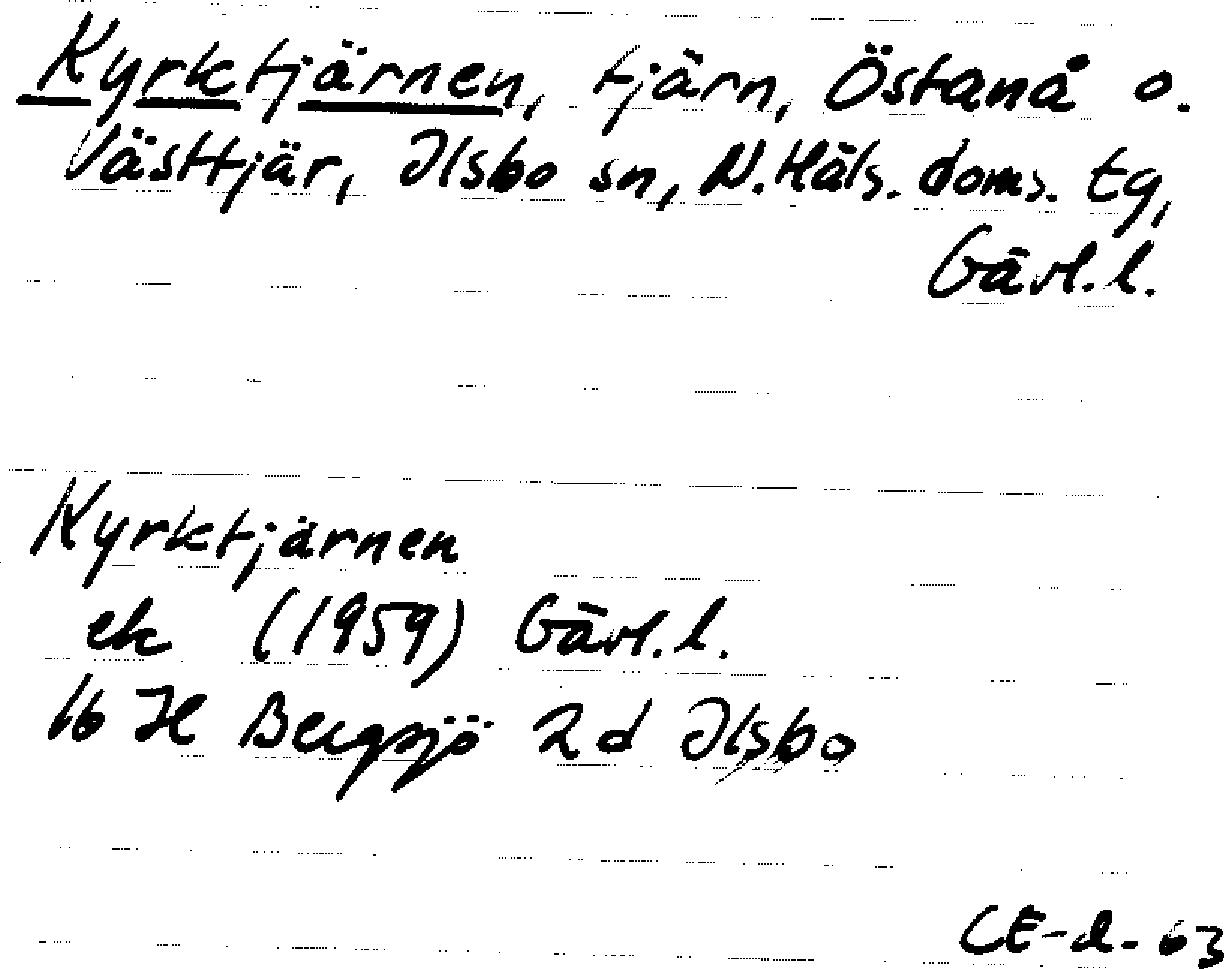 Kyrktjärnen, tjärn, Östanå o.
Västtjär, Ilsbo sn, N. Häls. doms. tg,
Gävl. l.
Kyrktjärnen
ek (1959) Gävl. l.
16 H Bergsjö 2 d Ilsbo
CE-d-63